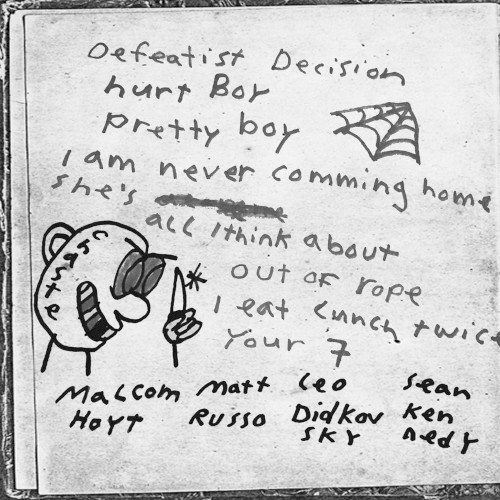 Defeatist Decision
hurt Boy
pretty boy
I am never comming home
she's
all I think about
out of rope
I eat lunch twice
Your 7
Malcom Hoyt
Matt Russo
Leo Didkov sky
Sean Ken nedy